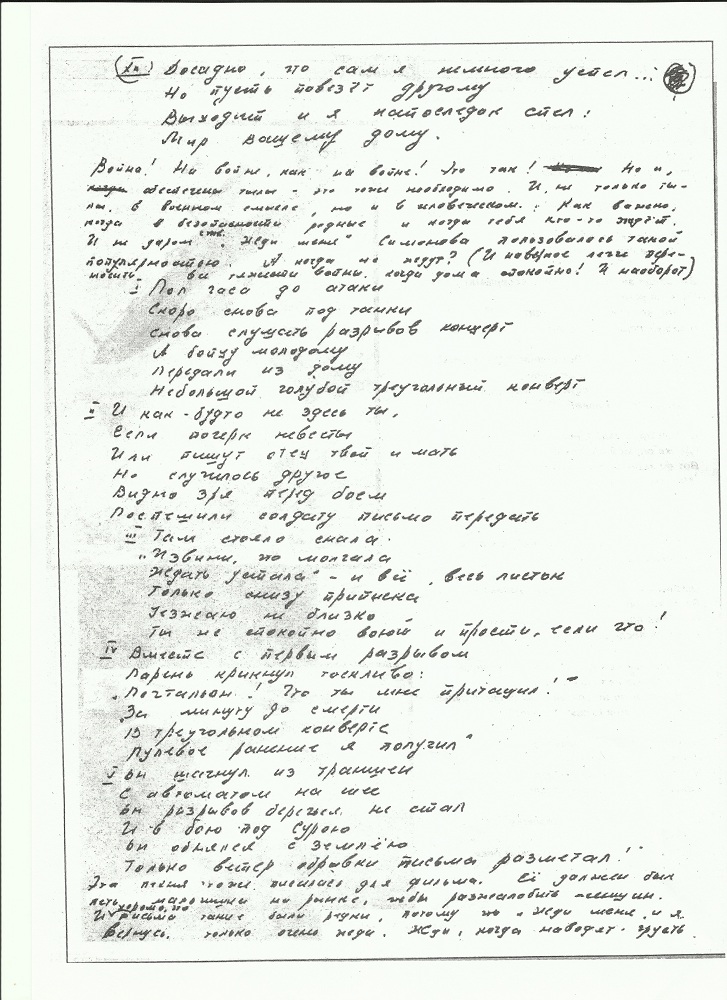 (XII) Досадно, что сам я немного успел...
Но пусть повезёт другому
Выходит и я напоследок спел:
Мир вашему дому.
Война! На войне, как на войне! Это так! Но и,
обеспечены тылы - это тоже необходимо. И, не только ты-
лы, в военном смысле, но и в человеческом. Как важно,
когда в безопасности родные и когда тебя кто-то ждёт.
И не даром ств. "Жди меня" Симонова пользовалось такой
популярностью. А когда не ждут? (И наверное легче пере-
носить все тяжести войны, когда дома спокойно! И наоборот)
I Пол часа до атаки
Скоро снова под танки
Снова слушать разрывов концерт
А бойцу молодому
Передали из дому
Небольшой голубой треугольный конверт
II И как-будто не здесь ты,
Если почерк невесты
Или пишут отец твой и мать
Но случилось другое
Видно зря перед боем
Поспешили солдату письмо передать
III Там стояло сначала.
"Извини, что молчала
Ждать устала" - и всё, весь листок
Только снизу приписка
Уезжаю не близко
Ты же спокойно воюй и прости, если что!
IV Вместе с первым разрывом
Парень крикнул тоскливо:
"Почтальон! Что ты мне притащил!"
"За минуту до смерти
В треугольном конверте
Пулевое ранение я получил"
V Он шагнул из траншеи
С автоматом на шее
Он разрывов беречься не стал
И в бою под Сурою
Он обнялся с землёю
Только ветер обрывки письма разметал!
Эта песня тоже писалась для фильма. Её должен был
петь мальчишка на рынке, чтобы разжалобить женщин.
И хорошо, что письма такие были редки, потому что "Жди меня, и я
вернусь, только очень жди. Жди, когда наводят грусть